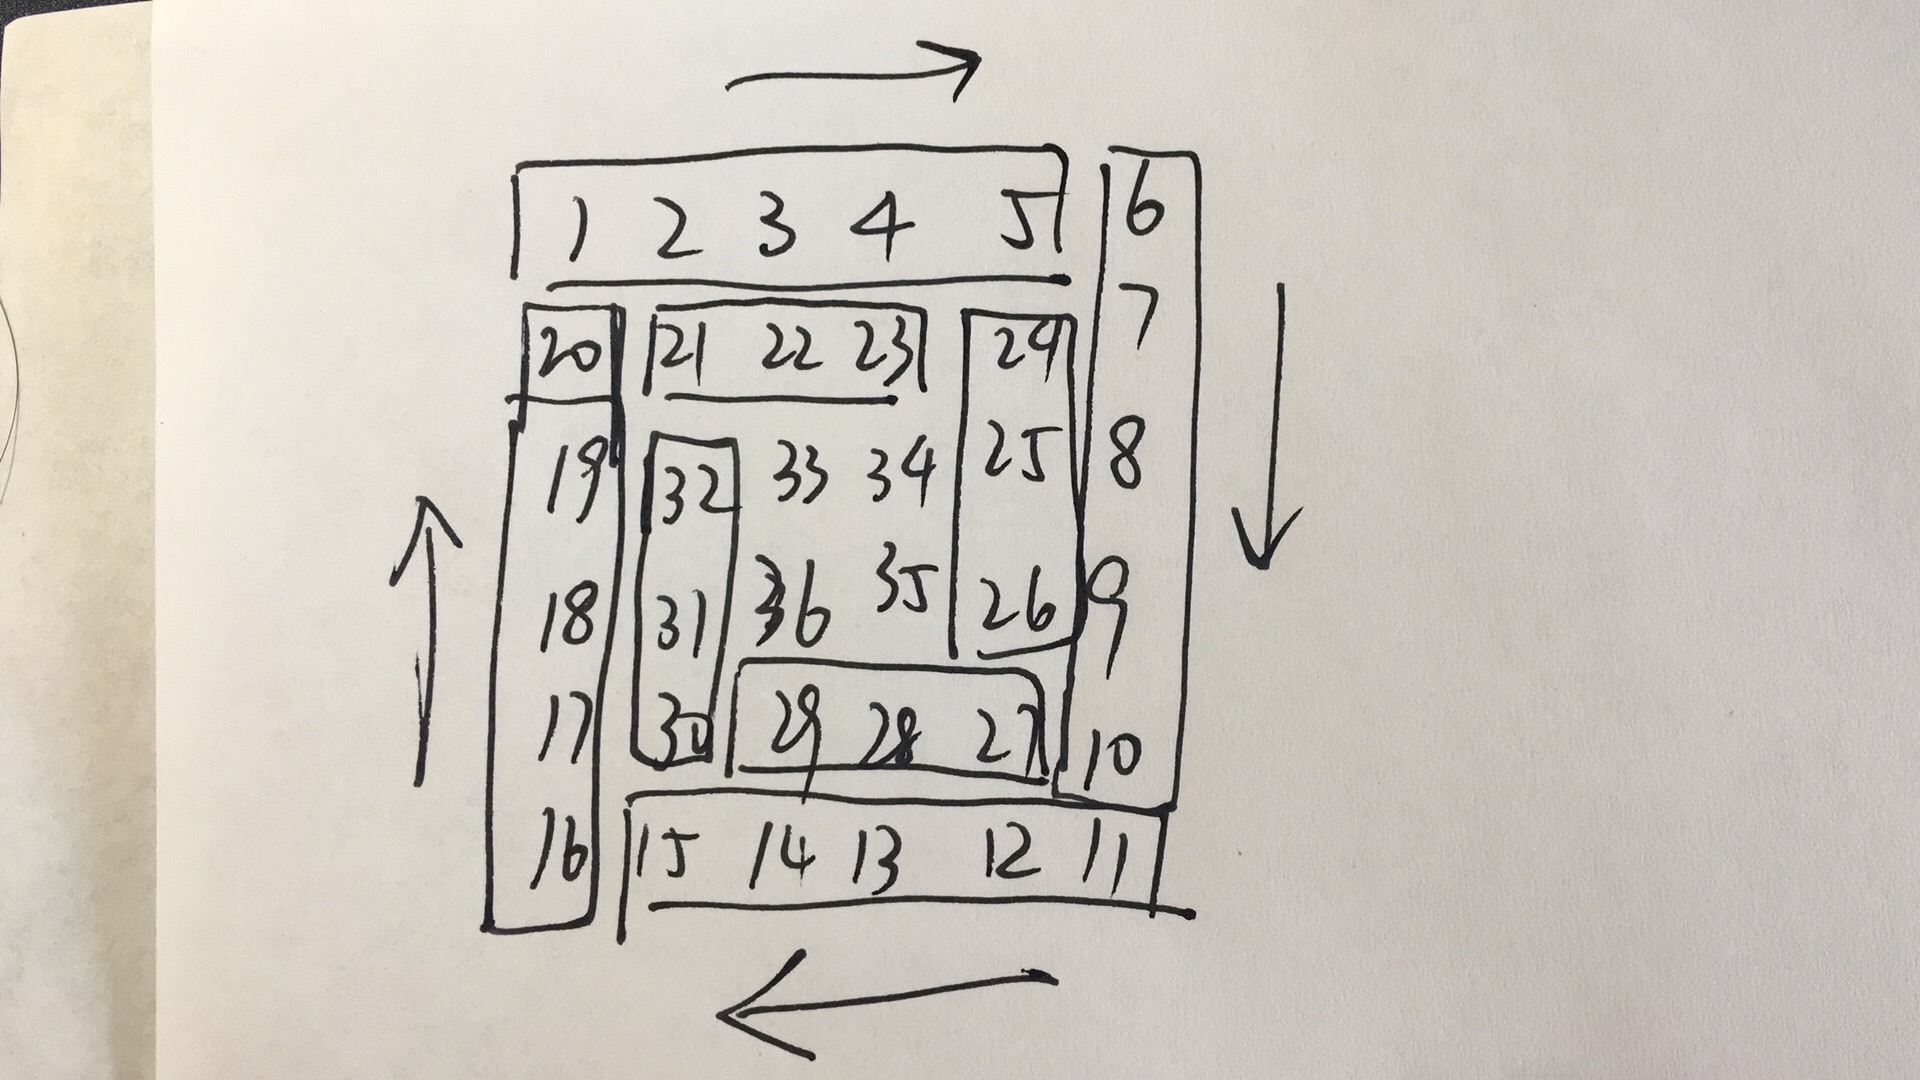 1 2 3 4 5 6
20 21 22 23 24 7
19 32 33 34 25 8
18 31 36 35 26 9
17 30 29 28 27 10
16 15 14 13 12 11